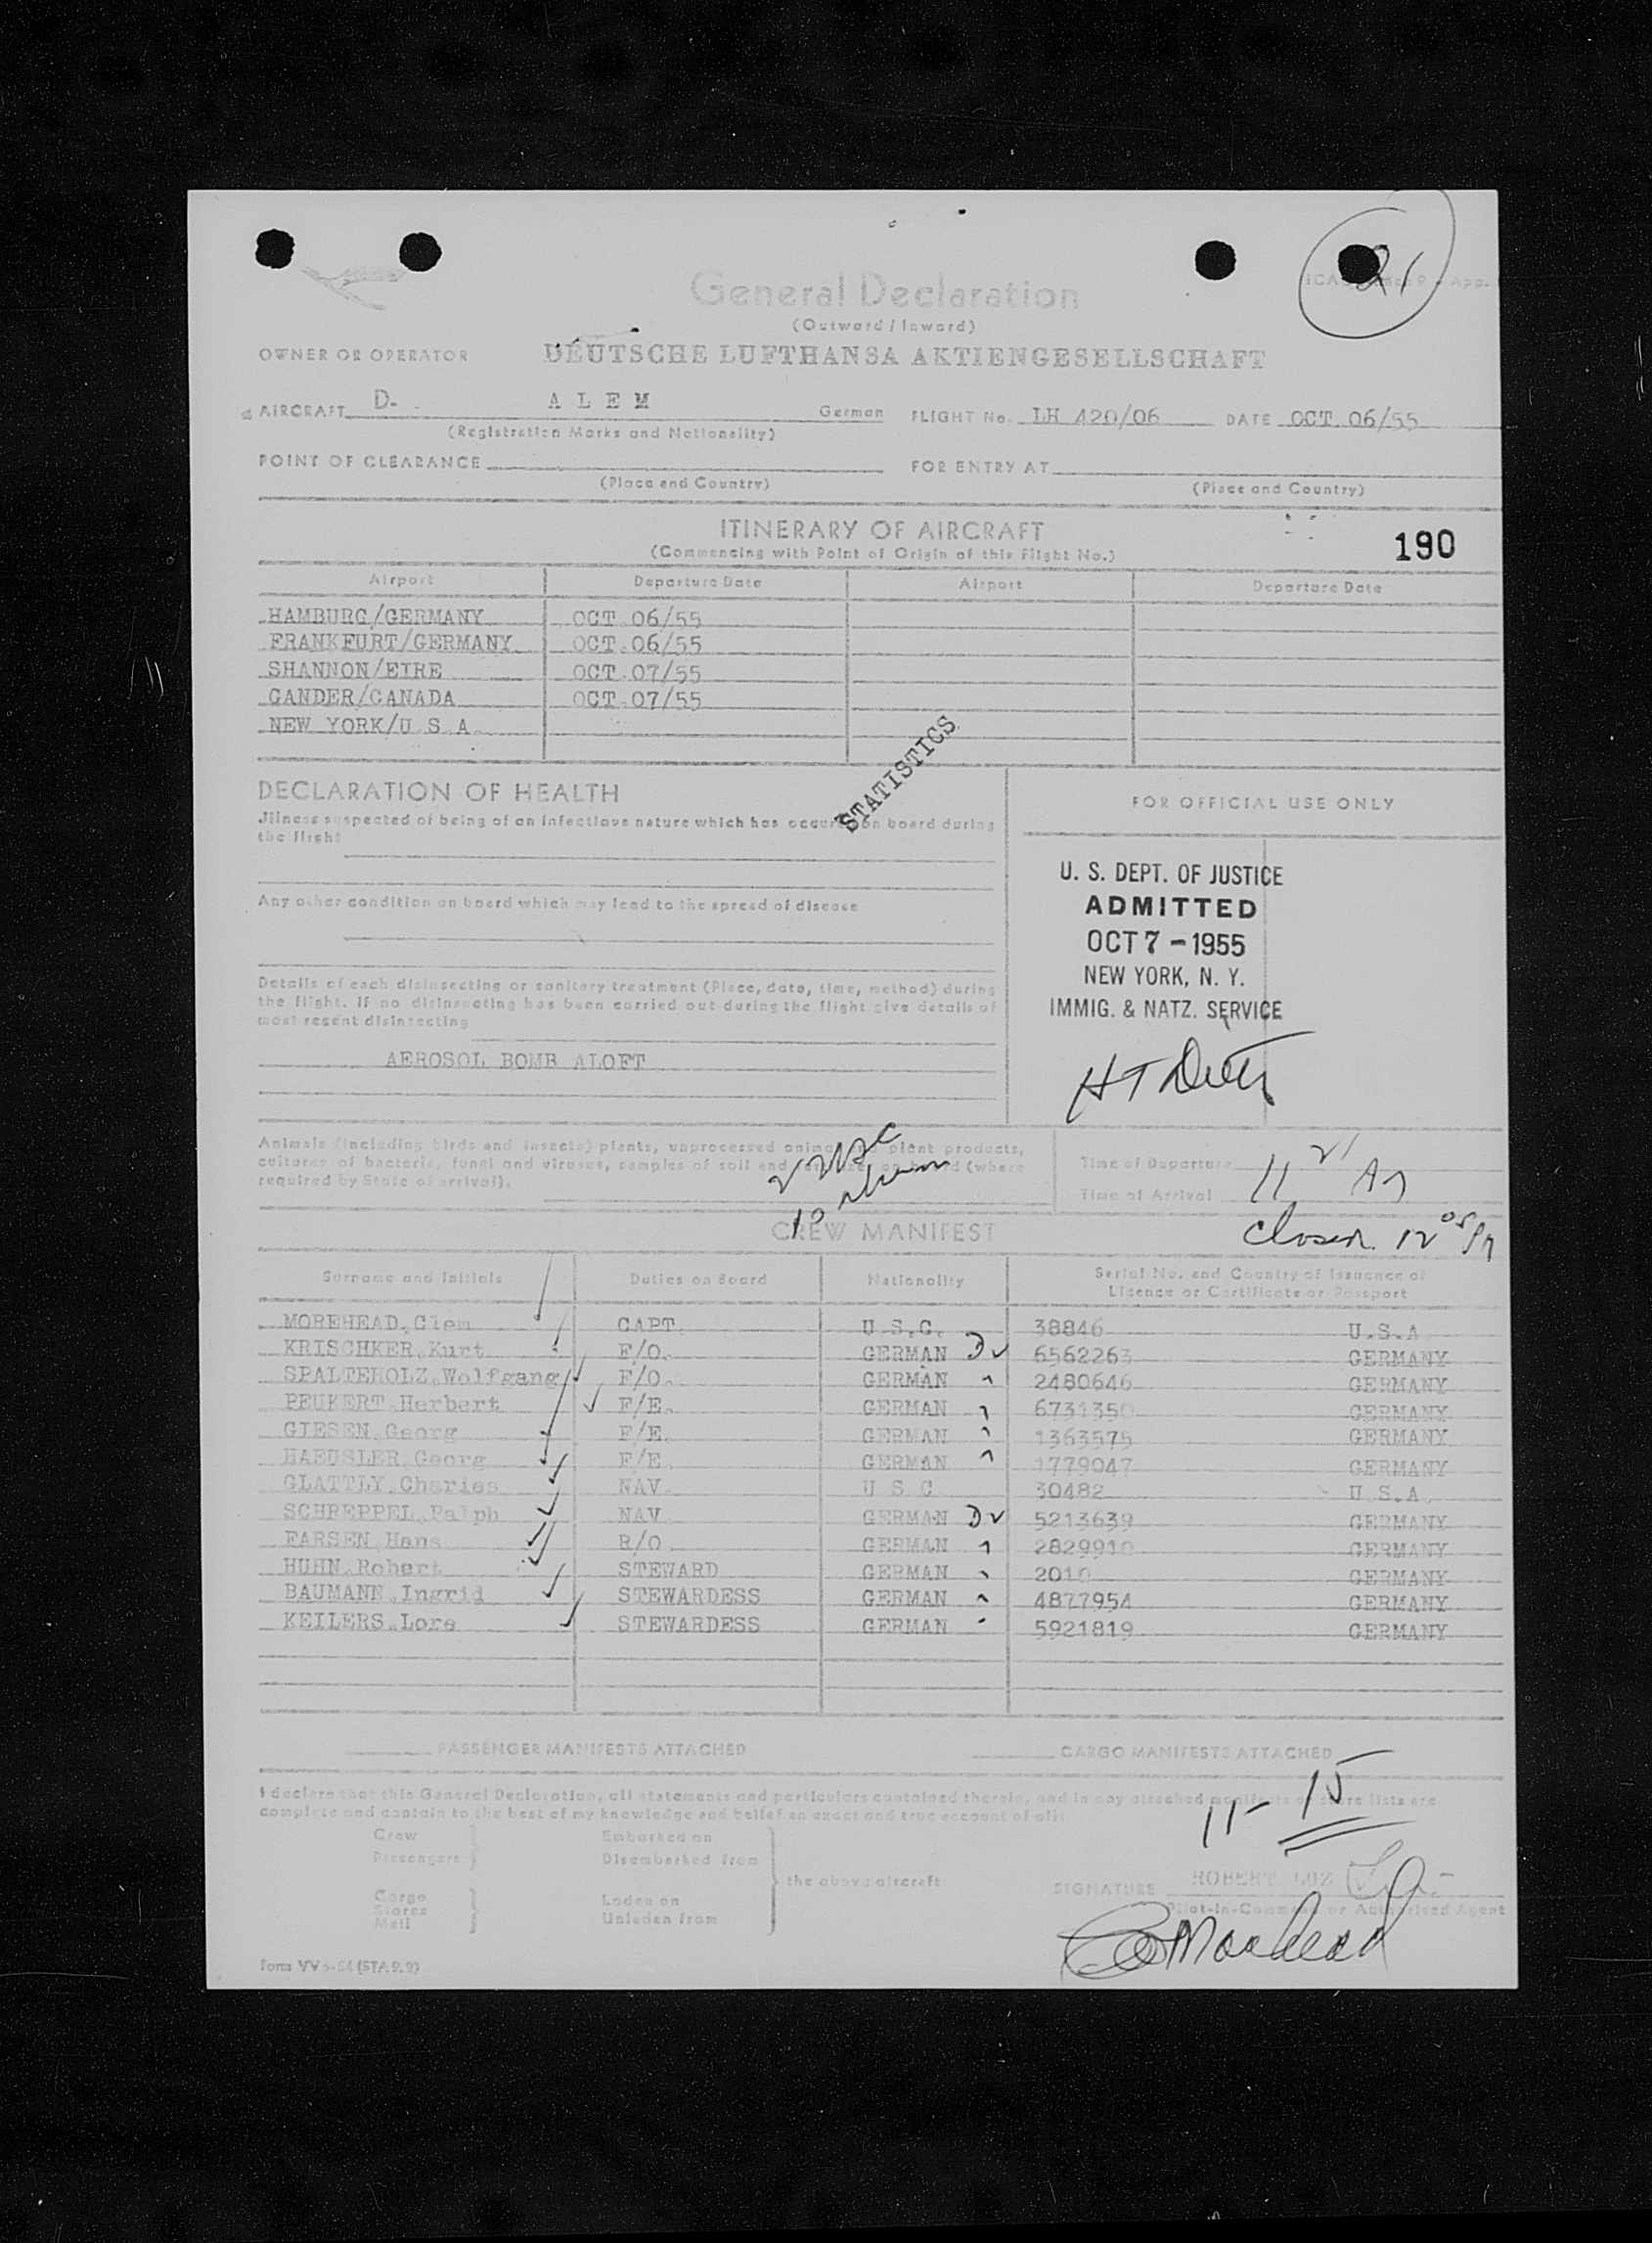 21
General Declaration
(Outward / Inward)
OWNER OR OPERATOR DEUTSCHE LUFTHANSA AKTIENGESELLSCHAFT
AIRCRAFT D- A L E M German FLIGHT No. LH 420/06 DATE OCT. 06/55
(Registration Marks and Nationality)
POINT OF CLEARANCE FOR ENTRY AT
(Place and Country) (Place and Country)
ITINERARY OF AIRCRAFT
(Commencing with Point of Origin of this Flight No.) 190
Airport Departure Date Airport Departure Date
HAMBURG/GERMANY OCT. 06/55
FRANKFURT/GERMANY OCT. 06/55
SHANNON/EIRE OCT. 07/55
GANDER/CANADA OCT. 07/55
NEW YORK/U.S.A.
STATISTICS
DECLARATION OF HEALTH
Jilness suspected of being of an infectious nature which has occured on board during
the flight
Any other condition on board which may lead to the spread of disease
Details of each disinsecting or sanitary treatment (Place, date, time, method) during
the flight. If no disinsecting has been carried out during the flight give details of
most recent disinsecting
AEROSOL BOMB ALOFT
FOR OFFICIAL USE ONLY
U. S. DEPT. OF JUSTICE
ADMITTED
OCT 7 - 1955
NEW YORK, N. Y.
IMMIG. & NATZ. SERVICE
Animals (including birds and insects) plants, unprocessed plant products,
cultures of bacteria, fungi and viruses, samples of soil and (where
required by State of arrival).
Time of Departure
Time of Arrival 11 21 AM
closed 12 05 PM
CREW MANIFEST
Surname and Initials Duties on Board Nationality Serial No. and Country of Issuance of
Licence or Certificate or Passport
MOREHEAD, Clem CAPT. U.S.C. 38846 U.S.A.
KRISCHKER, Kurt F/O. GERMAN 6562263 GERMANY
SPALTEHOLZ, Wolfgang F/O. GERMAN 2480646 GERMANY
PEUKERT, Herbert F/E. GERMAN 6731350 GERMANY
GIESEN, Georg F/E. GERMAN 1363575 GERMANY
HAEUSLER, Georg F/E. GERMAN 1779047 GERMANY
GLATTLY, Charles NAV. U.S.C. 30482 U.S.A.
SCHREPPEL, Ralph NAV. GERMAN 5213639 GERMANY
FARSEN, Hans R/O. GERMAN 2829910 GERMANY
HUHN, Robert STEWARD GERMAN 2010 GERMANY
BAUMANN, Ingrid STEWARDESS GERMAN 4877954 GERMANY
KEILERS, Lore STEWARDESS GERMAN 5921819 GERMANY
PASSENGER MANIFESTS ATTACHED CARGO MANIFESTS ATTACHED
I declare that this General Declaration, all statements and particulars contained therein, and in any attached manifests or store lists are
complete and contain to the best of my knowledge and belief an exact and true account of all:
11- 15
Crew Embarked on
Passengers Disembarked from
the above aircraft
Cargo Laden on
Stores
Mail Unladen from
SIGNATURE ROBERT LUZ
Pilot-in-Command or Authorised Agent
Morehead